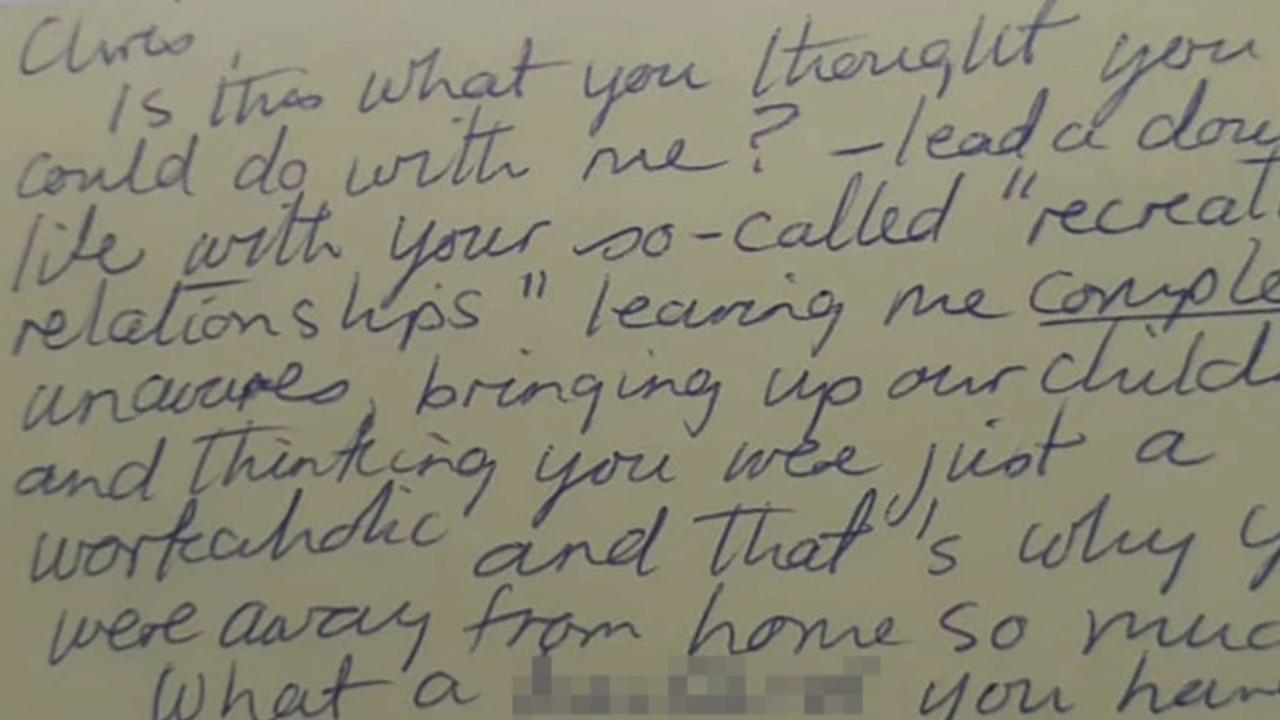 Chris,
Is this what you thought you
could do with me? - lead a dou
life with your so-called "recreat
relationships" leaving me comple
unawares, bringing up our child
and thinking you were just a
workaholic and that's why y
were away from home so muc
What a you hav